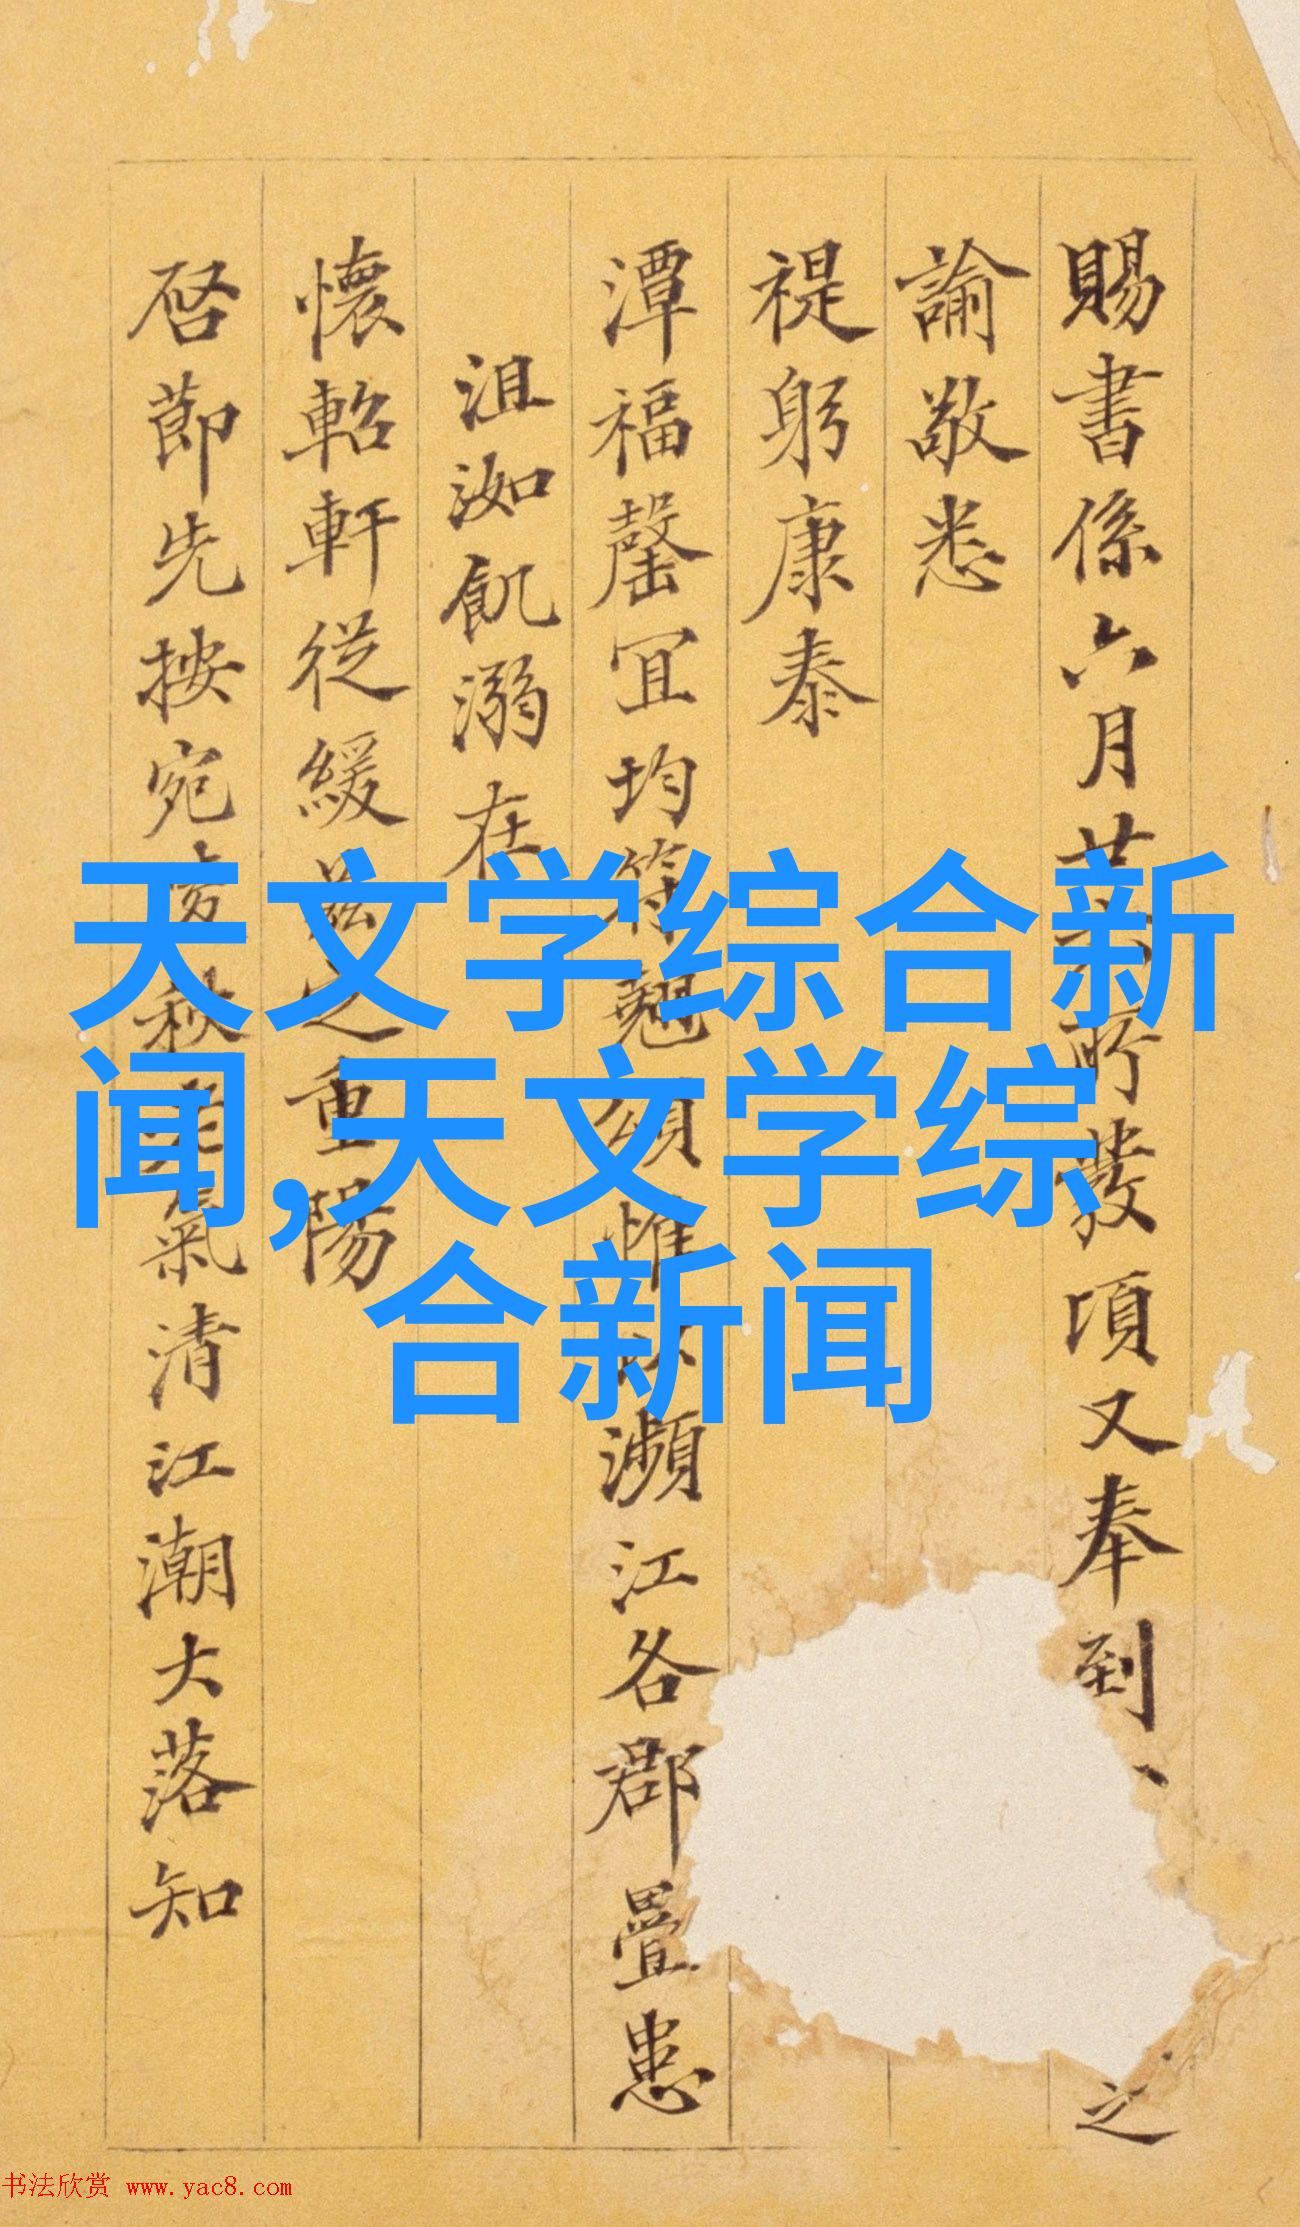 賜書係六月
發項又奉到
之
諭敬悉
禔躬康泰
潭福罄宜均符翹頌惟
瀕江各郡疊患
沮洳飢溺在
懷軺軒從緩
之重陽
啓節先按宛
秋
氣清江潮大落知
天文学综合新
闻,天文学综
合新闻
书法欣赏 www.yac8.com